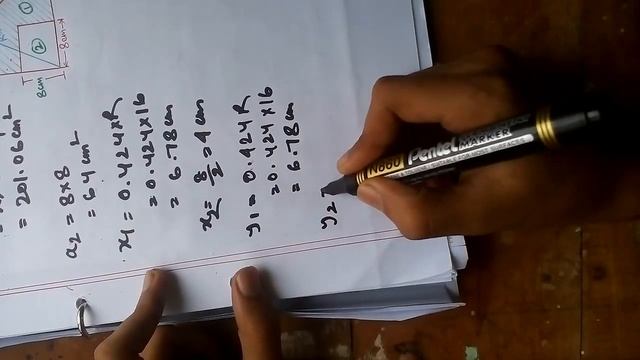 ①
②
8cm
8cm
= 201.06cm²
a₂ = 8×8
= 64cm²
x₁ = 0.424×R
= 0.424×16
= 6.78cm
x₂ = 8/2 = 4cm
y₁ = 0.424R
= 0.424×16
= 6.78cm
y₂
N860 Pentel PERMANENT MARKER